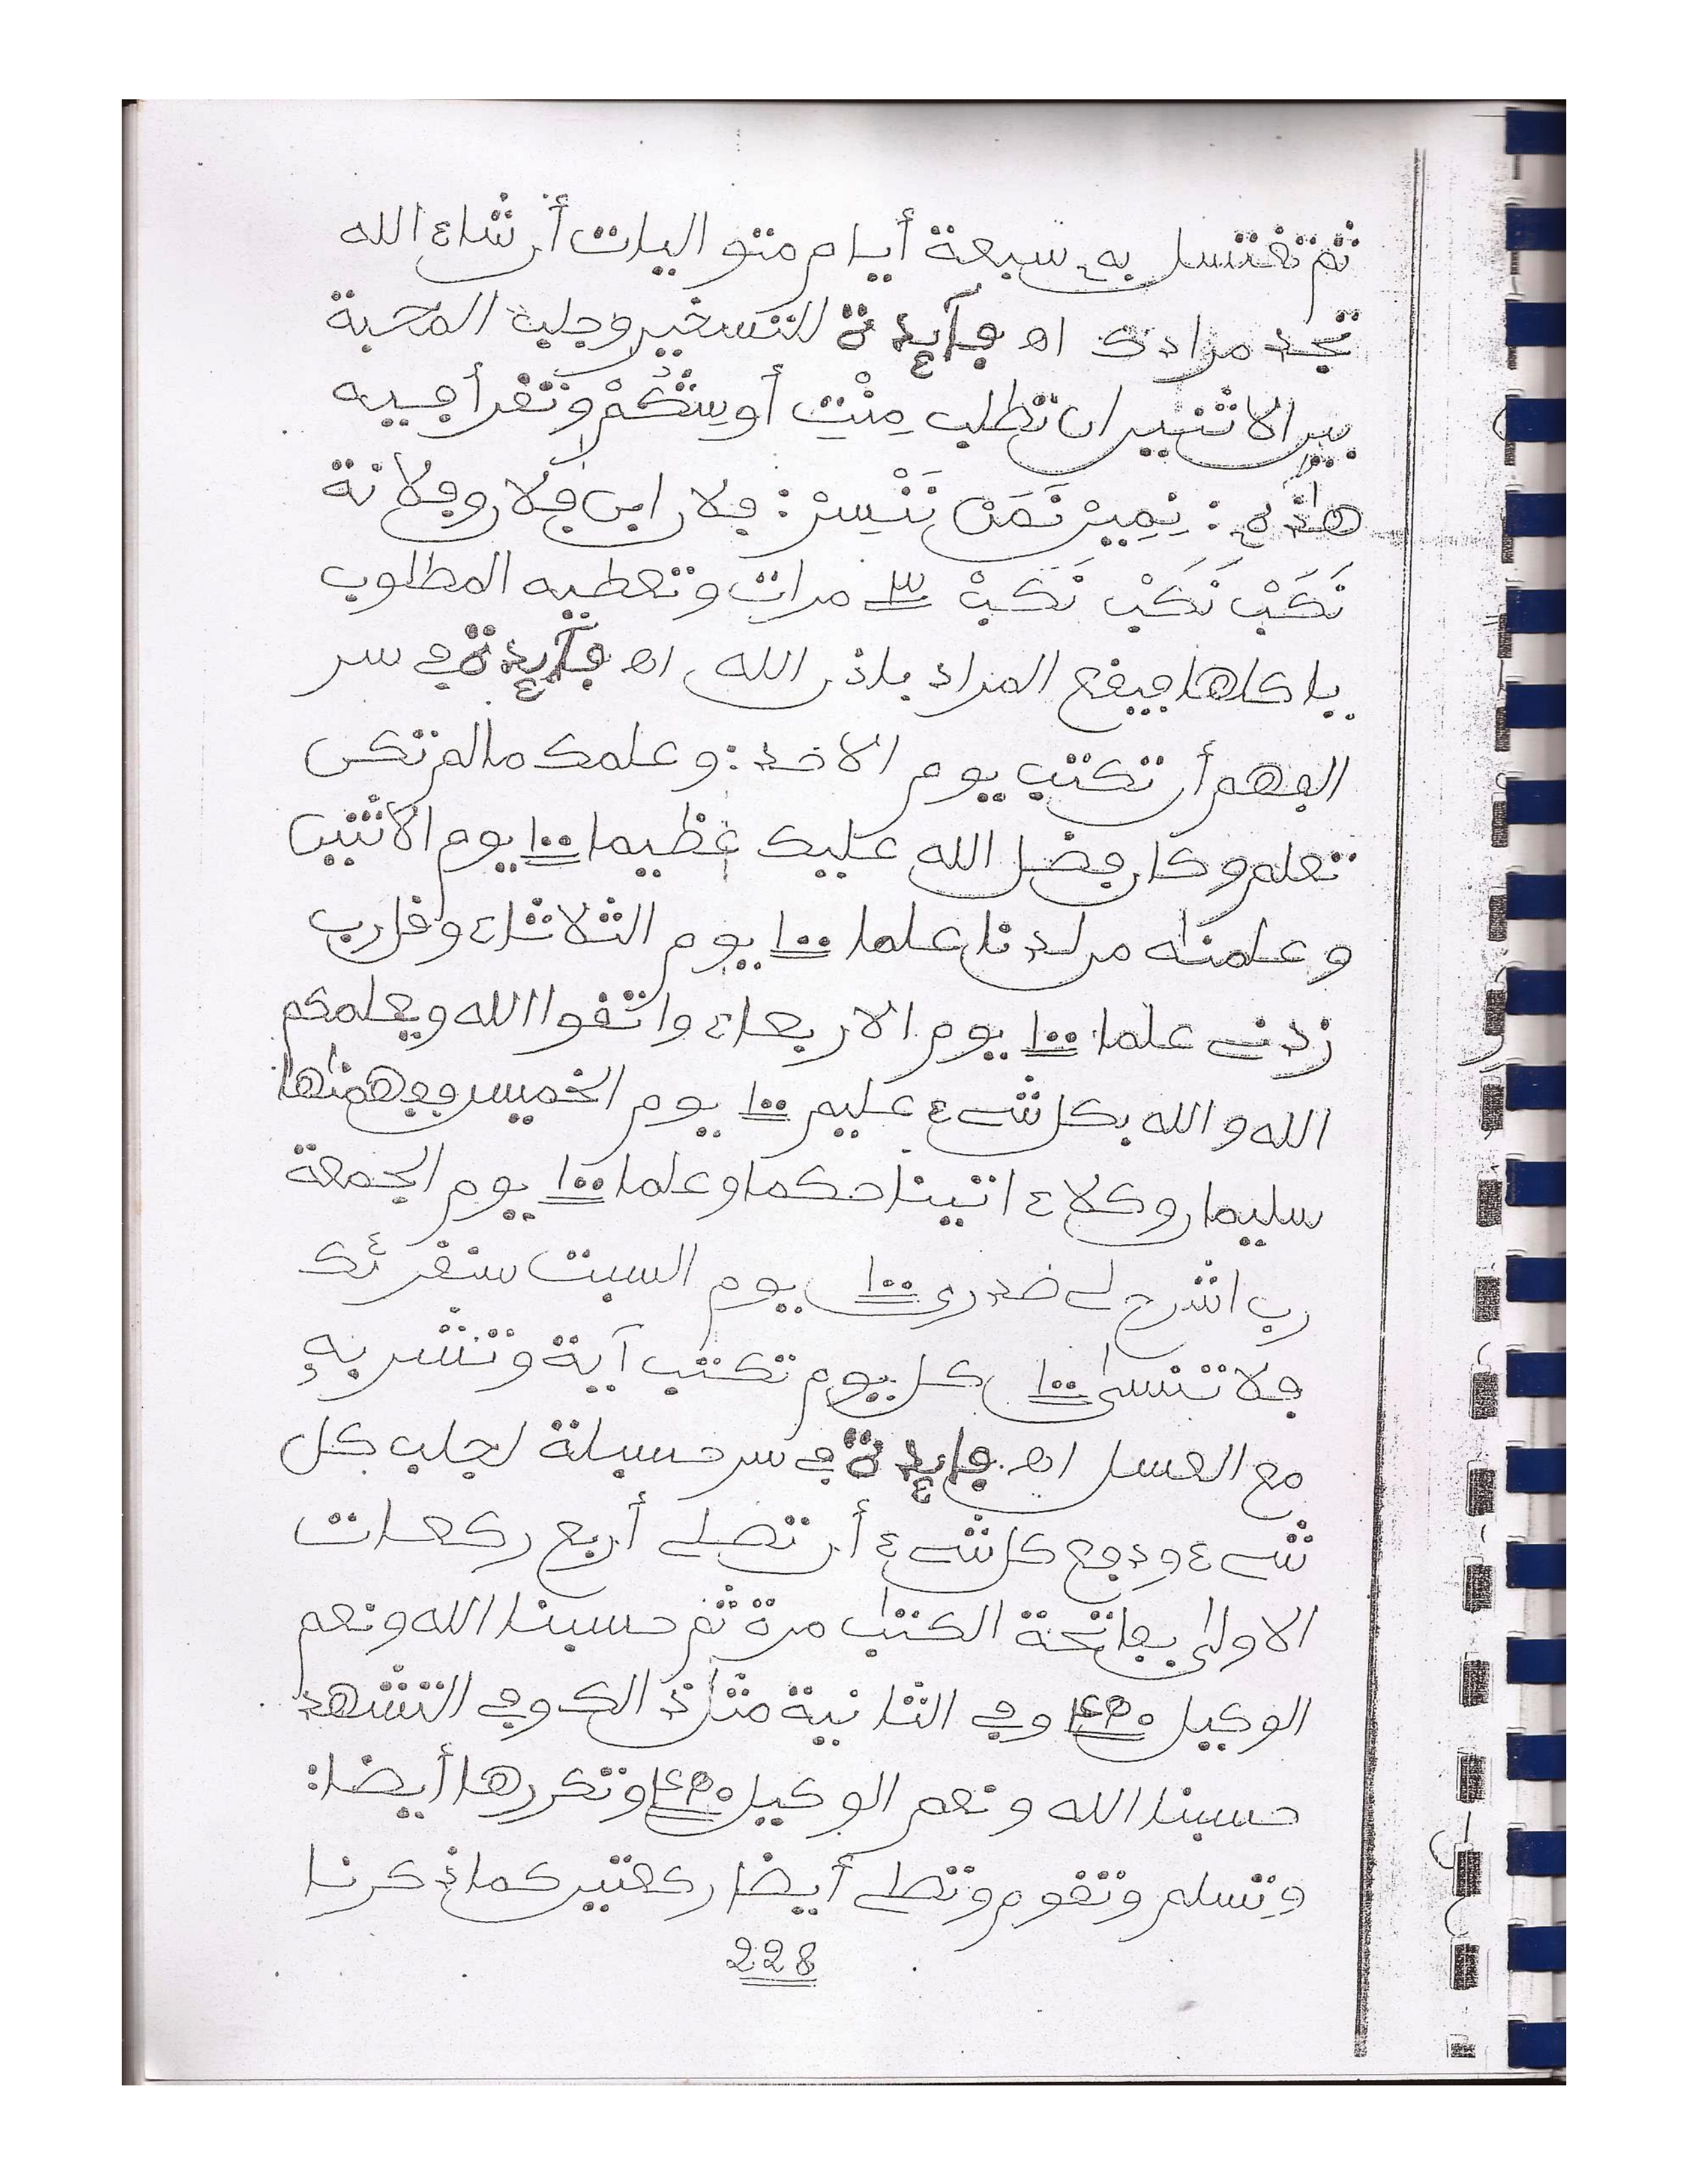 ثم تغتسل به سبعة أيام متواليات أن شاء الله
تجد مرادك اه فآئدة للتسخير وجلب المحبة
بين الاثنين ان تطلب مِنْتِ أوسِتْكُمْ وتقرأ فيه
هاذه : نِمِيرْ نَمَنْ نَنْسِرْ : فلان ابن فلان وفلانة
نَكَبْ نَكَبْ نَكَبْ ٣ مرات وتعطيه المطلوب
ياكلها فيقع المراد باذن الله اه فآئدة في سر
الفهم أن تكتب يوم الاحد : وعلمك مالم تكن
تعلم وكان فضل الله عليك عظيما ١٠٠ يوم الاثنين
وعلمنٰه من لدنا علما ١٠٠ يوم الثلاثاء وقل رب
زدني علما ١٠٠ يوم الاربعاء واتقوا الله ويعلمكم
الله والله بكل شيء عليم ١٠٠ يوم الخميس ففهمنٰها
سليمان وكلا ءاتينا حكما وعلما ١٠٠ يوم الجمعة
رب اشرح لي صدري ١٠٠ يوم السبت سنقرئك
فلا تنسى ١٠٠ كل يوم تكتب آية وتشربه
مع العسل اه فائدة في سر حسبلة لجلب كل
شيء ودفع كل شيء أن تصلي أربع ركعات
الاولى بفاتحة الكتٰب مرة ثم حسبنا الله ونعم
الوكيل ٤٥٠ وفي الثانية مثل ذالك وفي التشهد
حسبنا الله ونعم الوكيل ٤٥٠ وتكررها أيضا :
وتسلم وتقوم وتصلي أيضا ركعتين كما ذكرنا
228